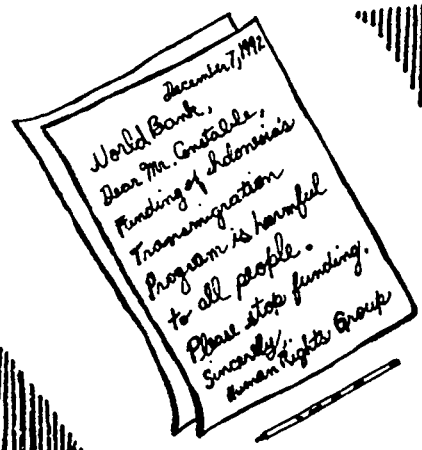 December 7, 1992
World Bank,
Dear Mr. Constable,
Funding of Indonesia's
Transmigration
Program is harmful
to all people.
Please stop funding.
Sincerely,
Human Rights Group